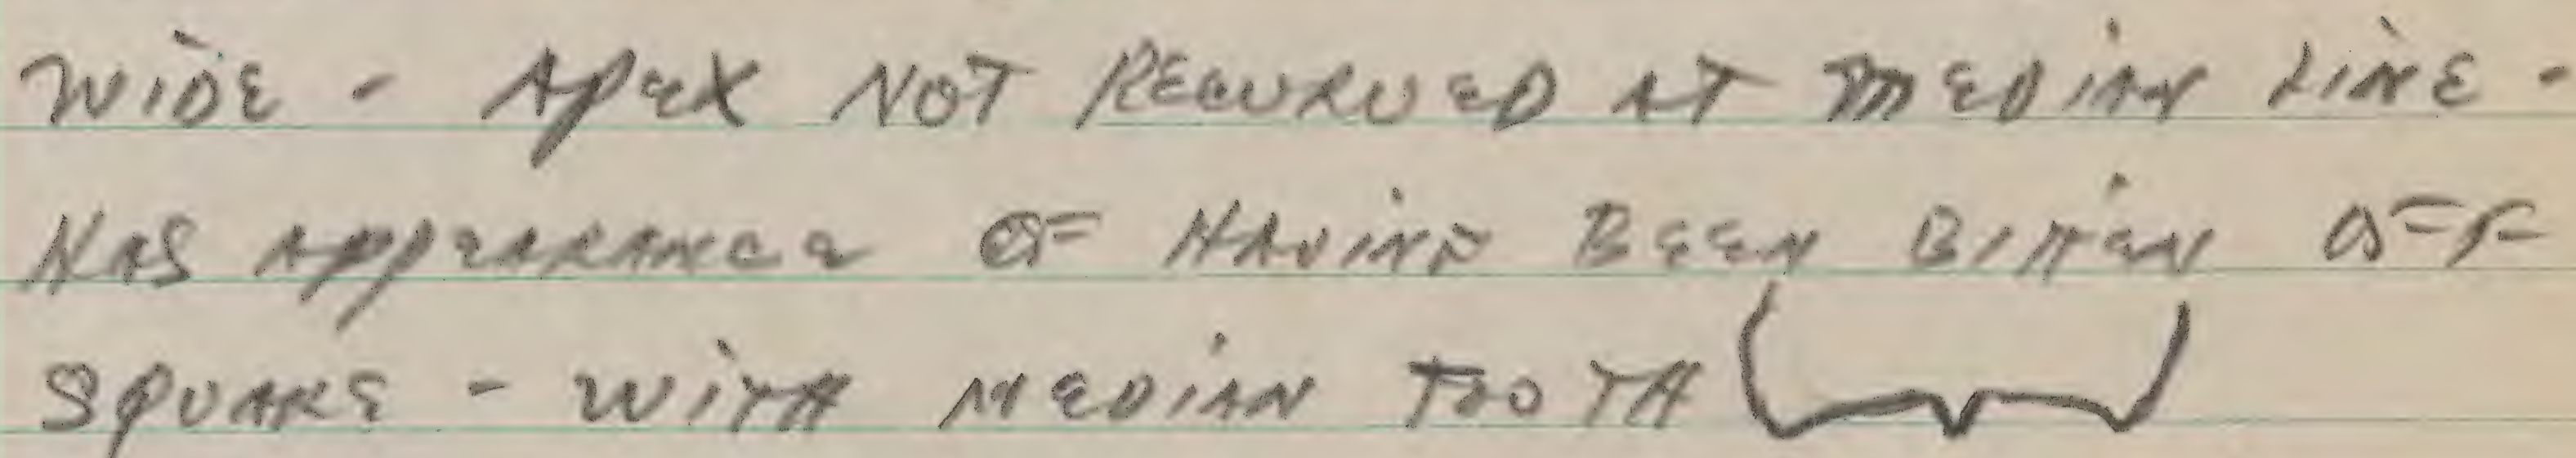 WIDE - APEX NOT RECURVED AT MEDIAN LINE -
HAS APPEARANCE OF HAVING BEEN BITTEN OFF
SQUARE - WITH MEDIAN TOOTH